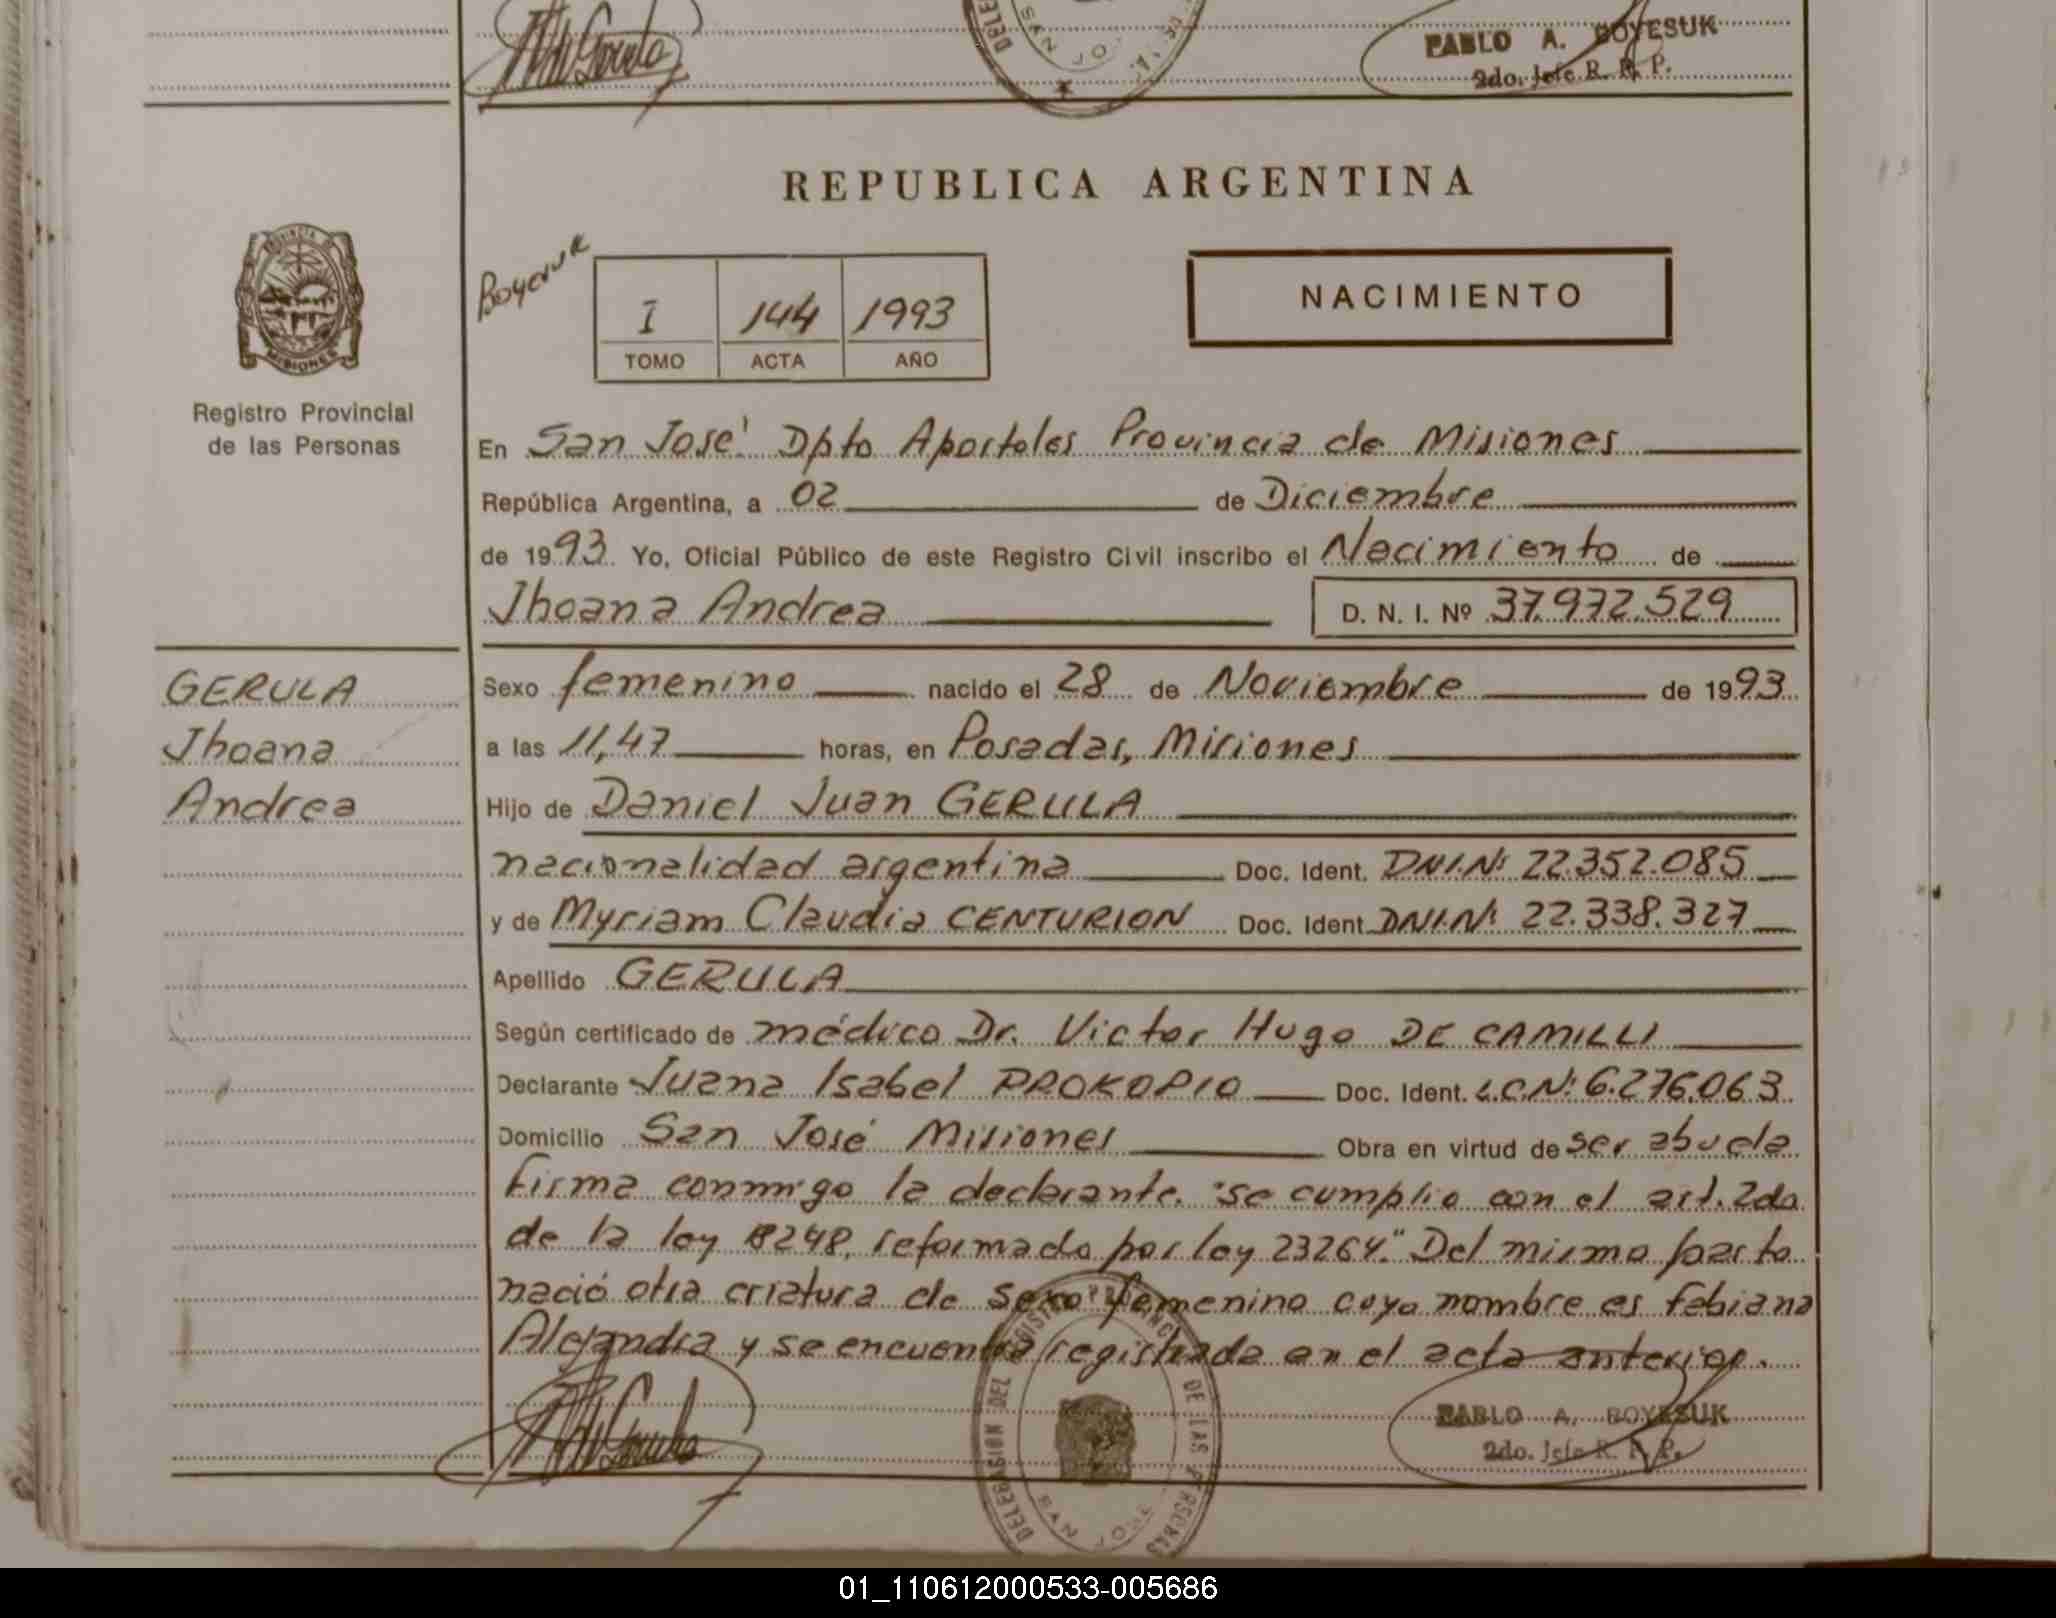 PABLO A. BOYESUK
2do. Jefe R. P. P.
REPUBLICA ARGENTINA
PROVINCIA DE
MISIONES
Registro Provincial
de las Personas
Boyesuk
I 144 1993
TOMO ACTA AÑO
NACIMIENTO
En San José Dpto Apostoles Provincia de Misiones
República Argentina, a 02 de Diciembre
de 1993 Yo, Oficial Público de este Registro Civil inscribo el Nacimiento de
Jhoana Andrea D. N. I. Nº 37.972.529
GERULA
Jhoana
Andrea
Sexo femenino nacido el 28 de Noviembre de 1993
a las 11,47 horas, en Posadas, Misiones
Hijo de Daniel Juan GERULA
nacionalidad argentina Doc. Ident. DNI.Nº 22.352.085
y de Myriam Claudia CENTURION Doc. Ident. DNI.Nº 22.338.327
Apellido GERULA
Según certificado de médico Dr. Victor Hugo DE CAMILLI
Declarante Juana Isabel PROKOPIO Doc. Ident. L.C.Nº 6.276.063
Domicilio San José Misiones Obra en virtud de ser abuela
firma conmigo la declarante. "se cumplio con el art. 2do
de la ley 18248, reformado por ley 23264." Del mismo parto
nació otra criatura de sexo femenino cuyo nombre es fabiana
Alejandra y se encuentra registrada en el acta anterior.
DELEGASION DEL REGISTRO PROVINC DE LAS PERSONAS
SAN JOSE
PABLO A. BOYESUK
2do. Jefe R. P. P.
01_110612000533-005686